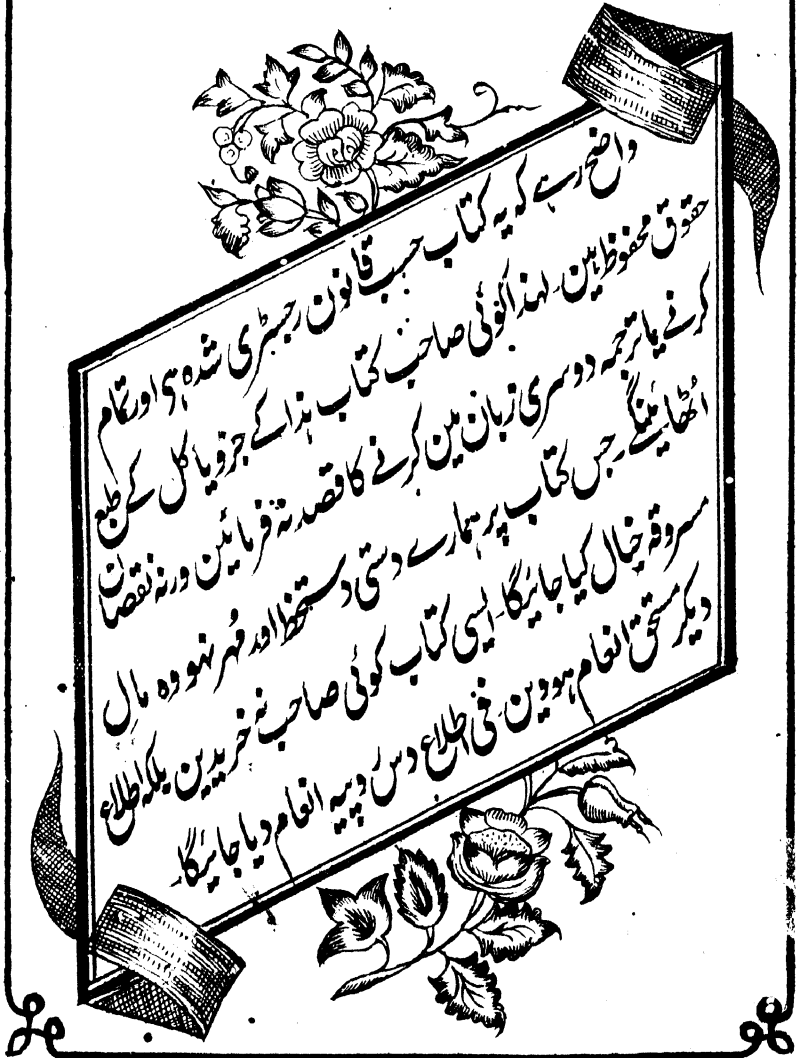 واضح رہے کہ یہ کتاب حسب قانون رجسٹری شدہ ہی اور تمام
حقوق محفوظ ہین۔ لہذا کوئی صاحب کتاب ہذا کے جزو یا کل کے طبع
کرنے یا ترجمہ دوسری زبان مین کرنے کا قصد نہ فرمائین ورنہ نقصان
اُٹھائینگے۔ جس کتاب پر ہمارے دستی دستخط اور مُہر نہو وہ مال
مسروقہ خیال کیا جائیگا۔ ایسی کتاب کوئی صاحب نہ خریدین بلکہ اطلاع
دیکر مستحق انعام ہووین۔ فی اطلاع دس روپیہ انعام دیا جائیگا۔